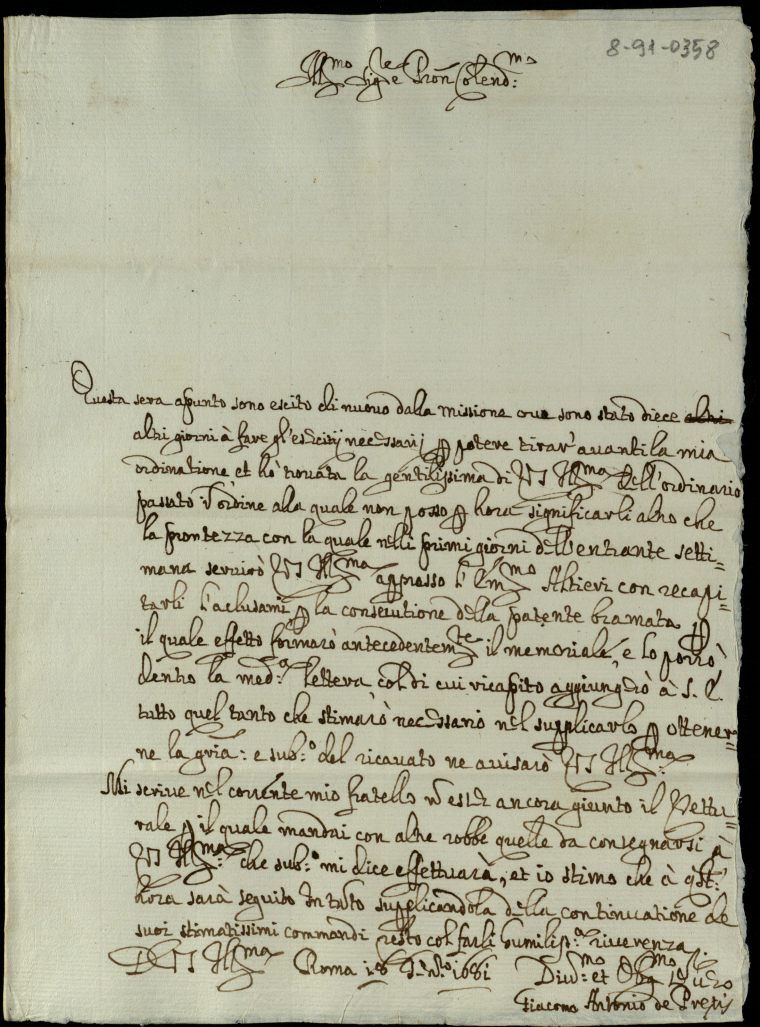 8-91-0358
Ill.mo Sig.re e Pron Colend.mo
Questa sera apunto sono escito di nuovo dalla missione ove sono stato diece altri
altri giorni à fare gl'esercitij necessarij p potere tirar' avanti la mia
ordinatione et hò trovata la gentilissima di VS Ill.ma dell'ordinario
passato ordine alla quale non posso p hora significarli altro che
la prontezza con la quale nelli primi giorni dell'entrante setti=
mana servirò VS Ill.ma appresso l'Em.mo Altieri con recapi=
tarli l'aclusami p la consecutione della patente bramata p
il quale effetto formarò antecedentem.te il memoriale, e lo porrò
dentro la med.a lettera col di cui ricapito aggiungerò à S. E.
tutto quel tanto che stimarò necessario nel supplicarlo p ottener=
ne la gria: e sub.o del ricavato ne avisarò VS Ill.ma
Mi scrive nel corrente mio fratello n esser ancora giunto il Vettu=
rale p il quale mandai con altre robbe quelle da consegnarsi à
VS Ill.ma che sub.o mi dice effettuarà, et io stimo che à qst'
hora sarà seguito In tutto supplicandola della continuatione de
suoi stimatissimi commandi resto col farli humiliss.a riverenza
D VS Ill.ma Roma 1681 Div.mo et Obg.mo Ser.
Giacomo Antonio de Pretis